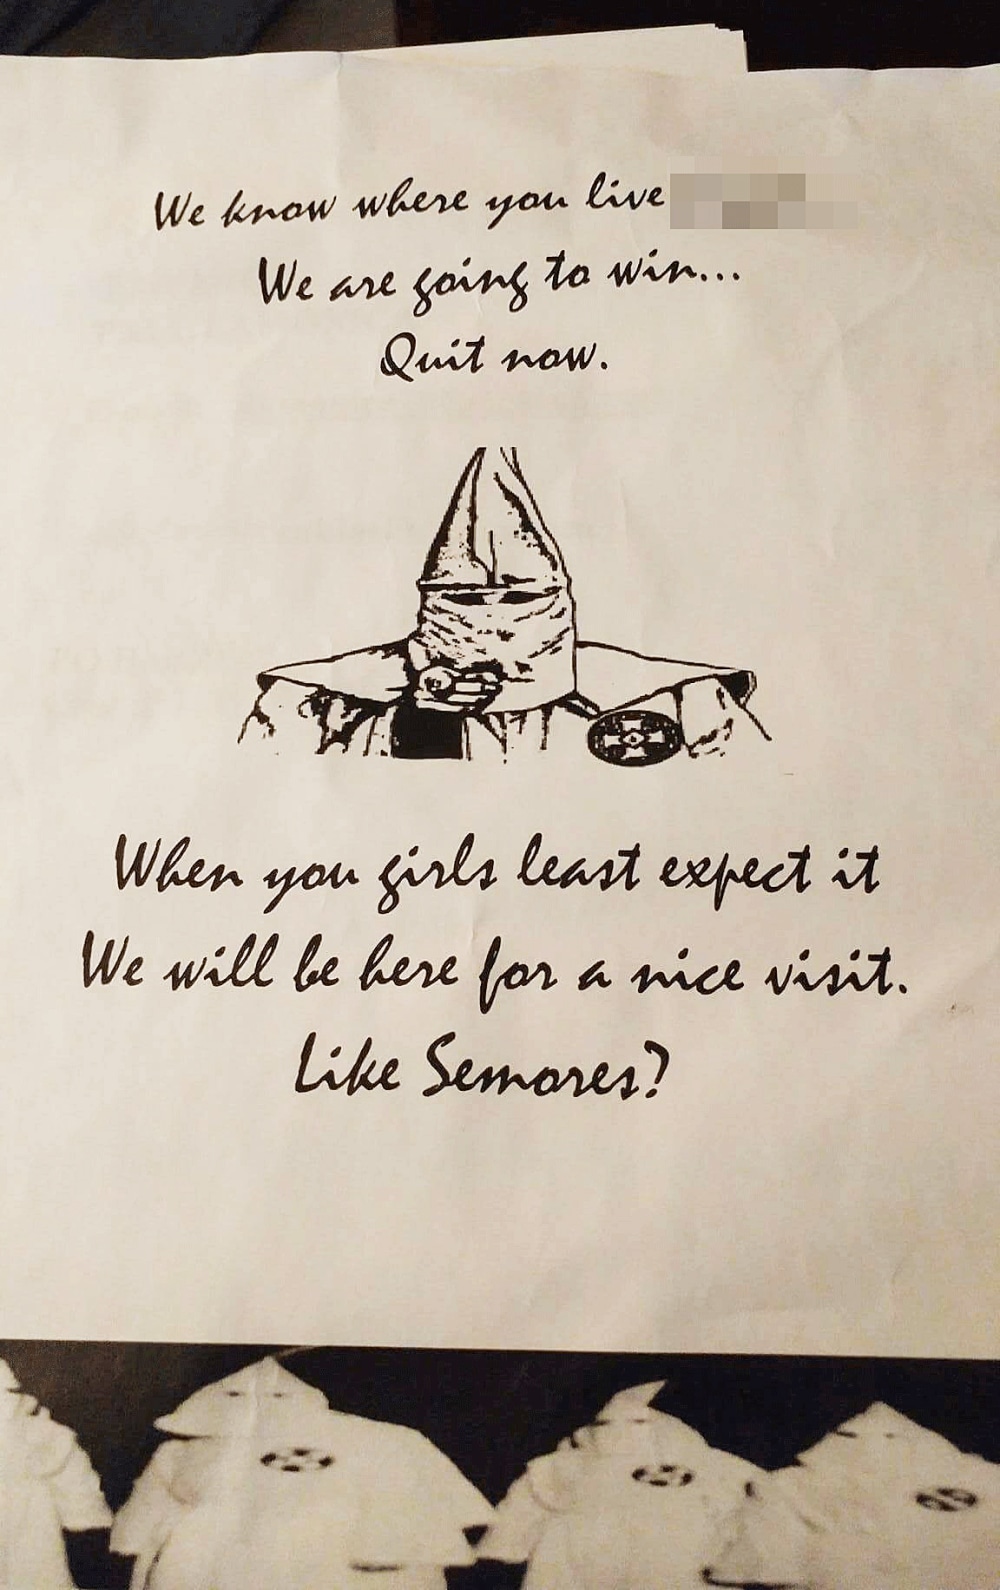 We know where you live
We are going to win...
Quit now.
When you girls least expect it
We will be here for a nice visit.
Like Semores?